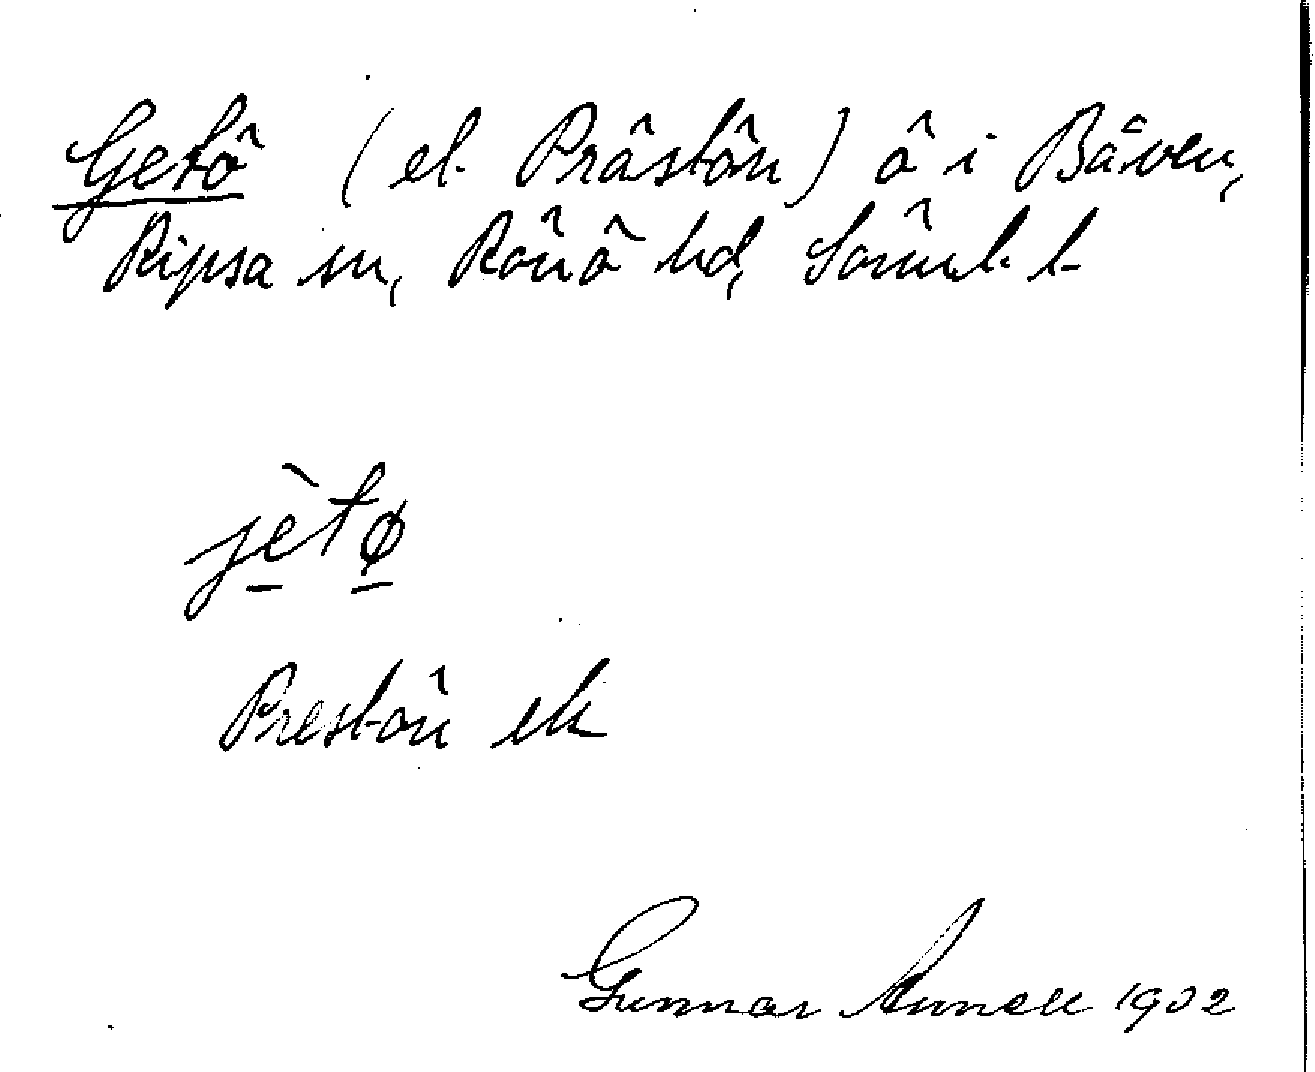 Getö (el. Prästön) ö i Båven,
Ripsa sn, Rönö hd, Sörml. l.
jètø
Prestön ek
Gunnar Annell 1902